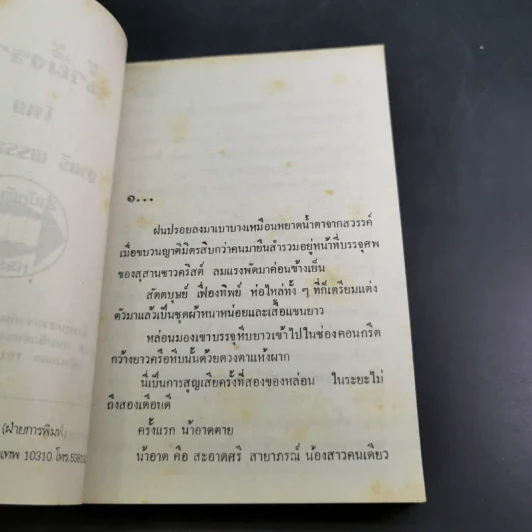 โดย
(ฝ่ายการพิมพ์)
เทพ 10310 โทร.
๑...
ฝนปรอยลงมาเบาบางเหมือนหยาดน้ำตาจากสวรรค์
เมื่อขบวนญาติมิตรสิบกว่าคนมายืนสำรวมอยู่หน้าที่บรรจุศพ
ของสุสานชาวคริสต์ ลมแรงพัดมาค่อนข้างเย็น
สัตตบุษย์ เฟื่องทิพย์ ห่อไหล่ทั้ง ๆ ที่ก็เตรียมแต่ง
ตัวมาแล้วเป็นชุดผ้าหนาหน่อยและเสื้อแขนยาว
หล่อนมองเขาบรรจุหีบยาวเข้าไปในช่องคอนกรีต
กว้างยาวครือหีบนั้นด้วยดวงตาแห้งผาก
นี่เป็นการสูญเสียครั้งที่สองของหล่อน ในระยะไม่
ถึงสองเดือนดี
ครั้งแรก น้าอาดตาย
น้าอาด คือ สะอาดศรี สายาภรณ์ น้องสาวคนเดียว